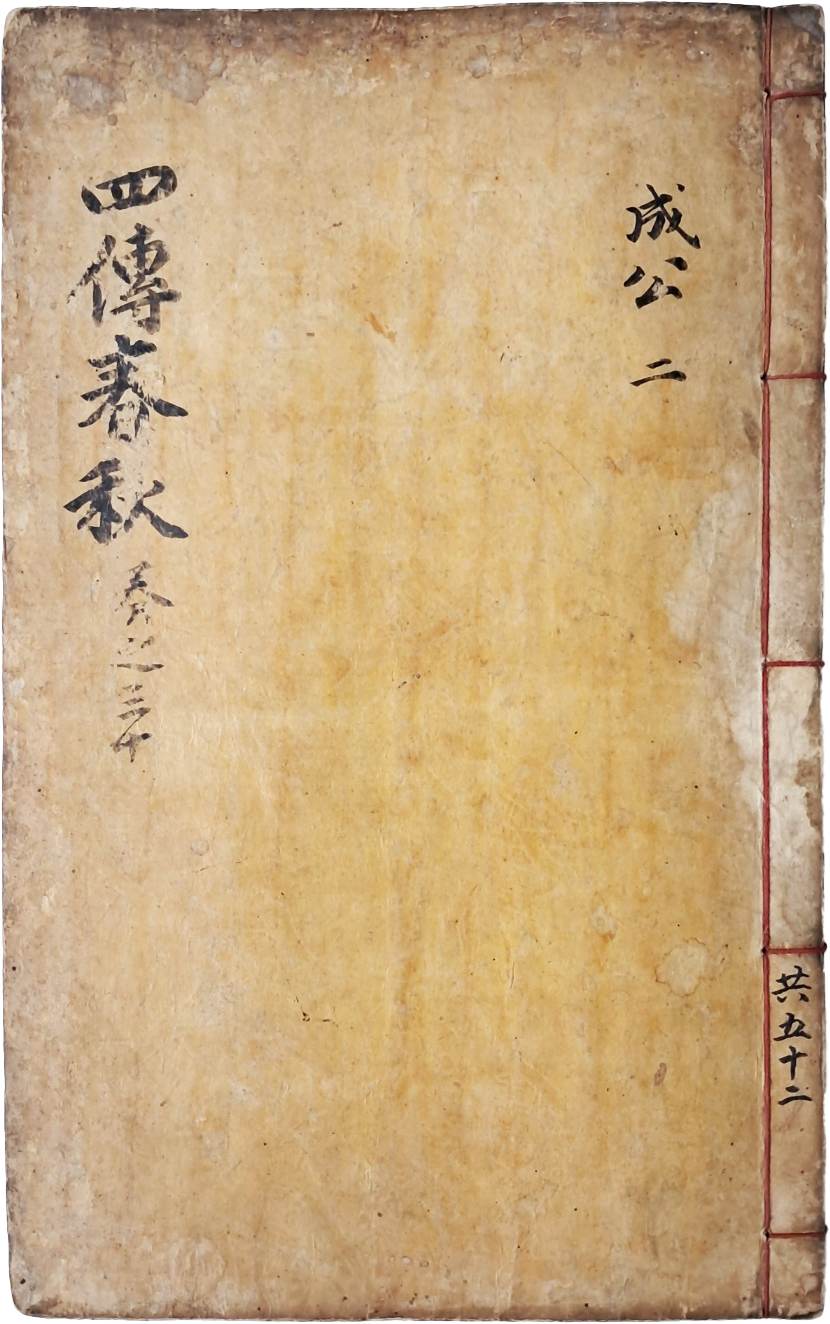 成公 二
四傳春秋 卷之三十
共五十二